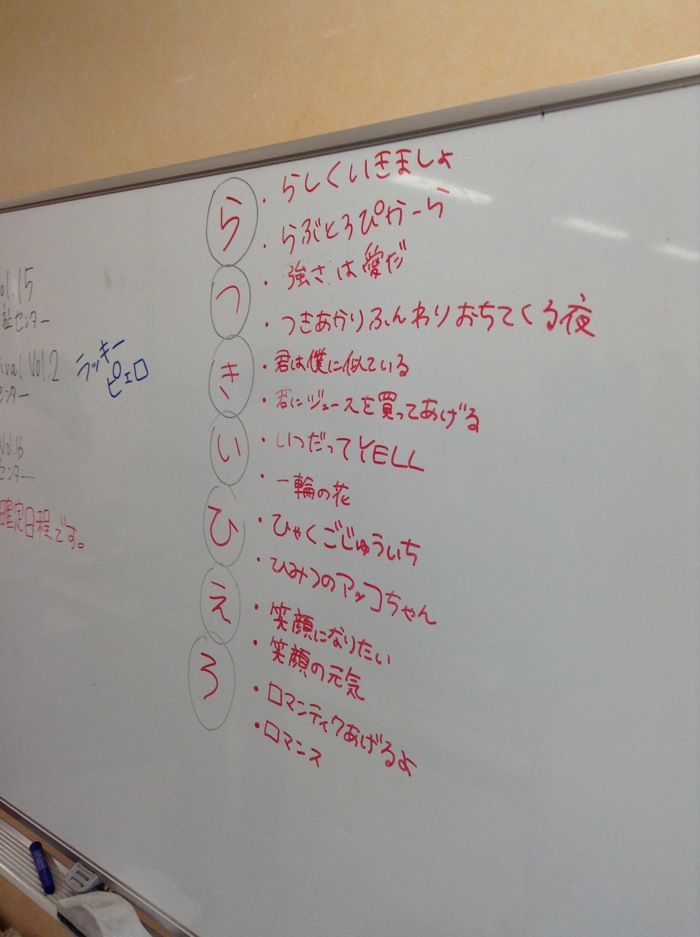 Vol.15
祉センター
ival Vol.2
センター
Vol.16
センター
確定日程です。
ラッキー
ピエロ
ら
・らしくいきましょ
・らぶとろぴかーら
っ
・強さは愛だ
・つきあかりふんわりおちてくる夜
き
・君は僕に似ている
・君にジュースを買ってあげる
い
・いつだってYELL
・一輪の花
ひ
・ひゃくごじゅういち
・ひみつのアッコちゃん
え
・笑顔になりたい
・笑顔の元気
ろ
・ロマンティクあげるよ
・ロマンス